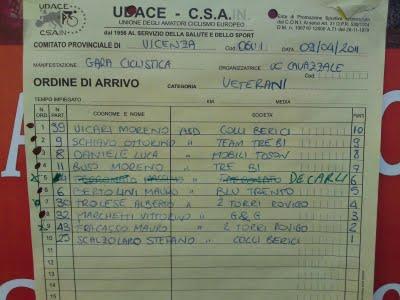 UDACE
CSAIN
UDACE - C.S.A.IN.
UNIONE DEGLI AMATORI CICLISMO EUROPEO
dal 1956 AL SERVIZIO DELLA SALUTE E DELLO SPORT
COMITATO PROVINCIALE DI VICENZA Cod. 0601 DATA 03/04/2011
MANIFESTAZIONE GARA CICLISTICA ORGANIZZATRICE UC CAVAZZALE
ORDINE DI ARRIVO CATEGORIA VETERANI
TEMPO IMPIEGATO KM MEDIA
N. ORD. N. PART COGNOME E NOME SOCIETÀ PUNTI
1 39 VICARI MORENO ASD COLLI BERICI 10
2 9 SCHIAVO OTTORINO " TEAM TRE BI 9
3 8 DANIELE LUCA " MOBILI TOSON 8
4 1 BUSO MORENO " TRE BI 7
5 DECARLI 6
6 6 BERTOLINI MAURO " BLU TRENTO 5
7 30 TROLESE ALBERTO " 2 TORRI ROVIGO 4
8 32 MARCHETTI VITTORINO " G&G 3
9 43 FRACASSO MAURO " 2 TORRI ROVIGO 2
10 25 SCALZOLARO STEFANO " COLLI BERICI 1